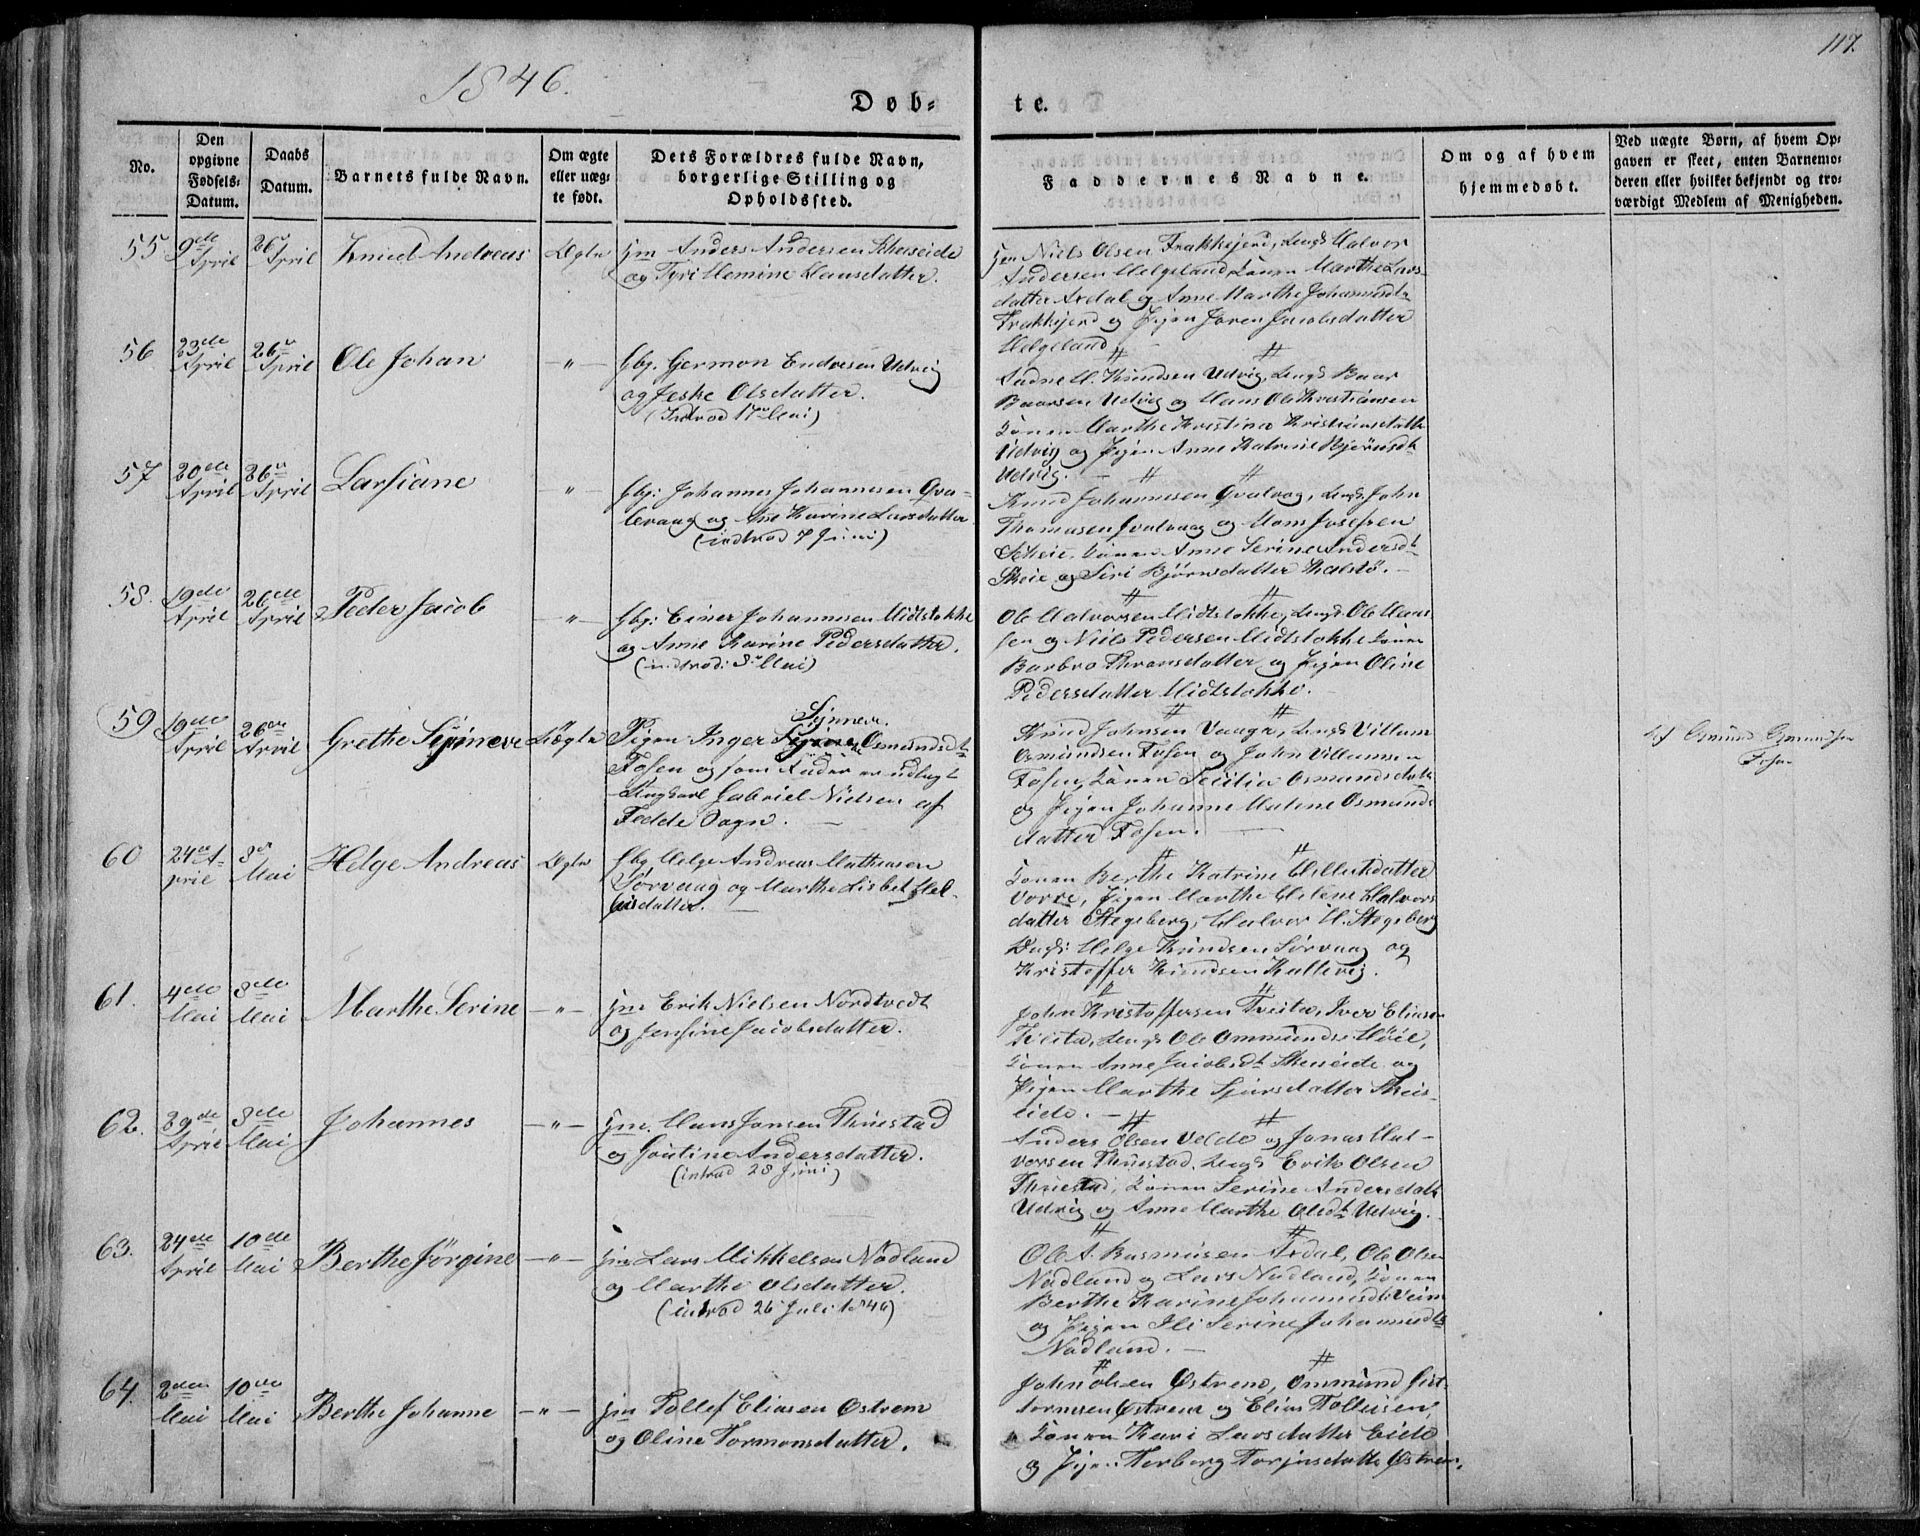 1846.
117.
Døb-
te.
No.
Den opgivne Fødsels-Datum.
Daabs Datum.
Barnets fulde Navn.
Om ægte eller uæg-te født.
Dets Forældres fulde Navn, borgerlige Stilling og Opholdssted.
Faddernes Navne.
Om og af hvem hjemmedøbt.
Ved uægte Børn, af hvem Op-
gaven er skeet, enten Barnemo-
deren eller hvilket bekjendt og tro-
værdigt Medlem af Menigheden.
55 9de April 26 April Knud Andreas Ægte
Gm Anders Andersen Scheiseide
og Hansdatter.
Niels Olsen Frakkjerd, Ungk Halvor
Andersen Helgeland, Konen Marthe Lars-
datter Ardal og Anne Marthe Johannesdt
Frakkjerd og Pigen Jøren Jacobsdatter
Helgeland
56 23de April 26 April Ole Johan -"-
Hbg. Germon Endresen Udvig
og Jeske Olsdatter.
(Indtrod 17 Mai)
Sadne H. Knudsen Udvig, Ungk Baar
Baarsen Udvig og Hans Ole Kristiansen
Konen Marthe Kristine Kristiansdatt
Udvig og Pigen Anne Katrine
Udvig.
57 20de April 26 April Larsiane -"-
Hbg: Johannes Johannesen Qva-
levaag og Ane Karine Larsdatter
(indtrod 7 Juni)
Knud Johannesen Qvalvag, Ungk John
Thomasen Qvalvaag og Mons Josefsen
Scheie. Konen Anne Serine Andersdt
Skeie og Siri Bjørnsdatter Kalstø.
58. 19de April 26de April Peder Jacob -"-
Hbg: Einer Johannesen Midstokke
og Anne Karine Pedersdatter.
(indtrod: 3 Mai)
Ole Halvorsen Midstokke, Ungk Ole Han-
sen og Niels Pedersen Midstokke Konen
Barbro Thronsdatter og Pigen Oline
Pedersdatter Midstokke.
59 19de April 26de April Grethe Uægte
Synneve
Pigen Inger Osmundsdt
Fosen og som Fader er udlagt
Ungkarl Gabriel Nielsen af
Fedde Sogn.
Knud Johnsen Vaage, Ungk Villum
Osmundsen Fosen og John Villumsen
Fosen, Konen Secilia Osmundsdatt
og Pigen Johanne Malene Osmunds
datter Fosen.
Af Osmund
Fosen
60 24 April 3 Mai Helge Andreas Ægte
Hbg Helge Andreas Mathiasen
Sørvaag og Marthe Lisbet Hel-
gesdatter.
Konen Berthe Katrine
Vorre, Pigen Marthe Helene Halvors
datter Stegeberg, Halvor H. Stegeberg
Ungk: Helge Knudsen Sørvaag og
Kristoffer Knudsen Kallevig.
61. 4de Mai 3de Mai Marthe Serine -"-
Gm Erik Nielsen Nordtvedt
og Jensine Jacobsdatter.
John Kristoffersen Tveita, Iver Eliasen
Tveita, Ungk Ole Ommunds Høie,
Konen Anne Jacobsdt Skeiseide og
Pigen Marthe Sjursdatter Skeis-
eide.
62. 29de April 3de Mai Johannes -"-
Gm. Hans Jonsen Thuestad
og Goutine Andersdatter.
(introd 28 Juni)
Anders Olsen Velde og Jonas Hal-
vorsen Thuestad. Ungk Erik Olsen
Thuestad, Konen Serine Andersdatt
Udvig og Anne Marthe Olsdt Udvig.
63. 24de April 10de Mai Berthe Jørgine -"-
Gm Lars Mikkelsen Nodland
og Marthe Olsdatter.
(introd 26 Juli 1846)
Ole A. Rasmusen Ardal, Ole Olsen
Nodland og Lars Nodland, Konen
Berthe Karine Johannesdt Veim
og Pigen Ili Serine Johannesdt
Nodland.
64. 2den Mai 10de Mai Berthe Johanne -"-
Gm Tollef Eliasen Østrem
og Oline Tormonsdatter.
John Olsen Østrem, Ommund
Østrem og Elias Tollefsen,
Konen Kari Larsdatter Eide
og Pigen Torborg Østrem.